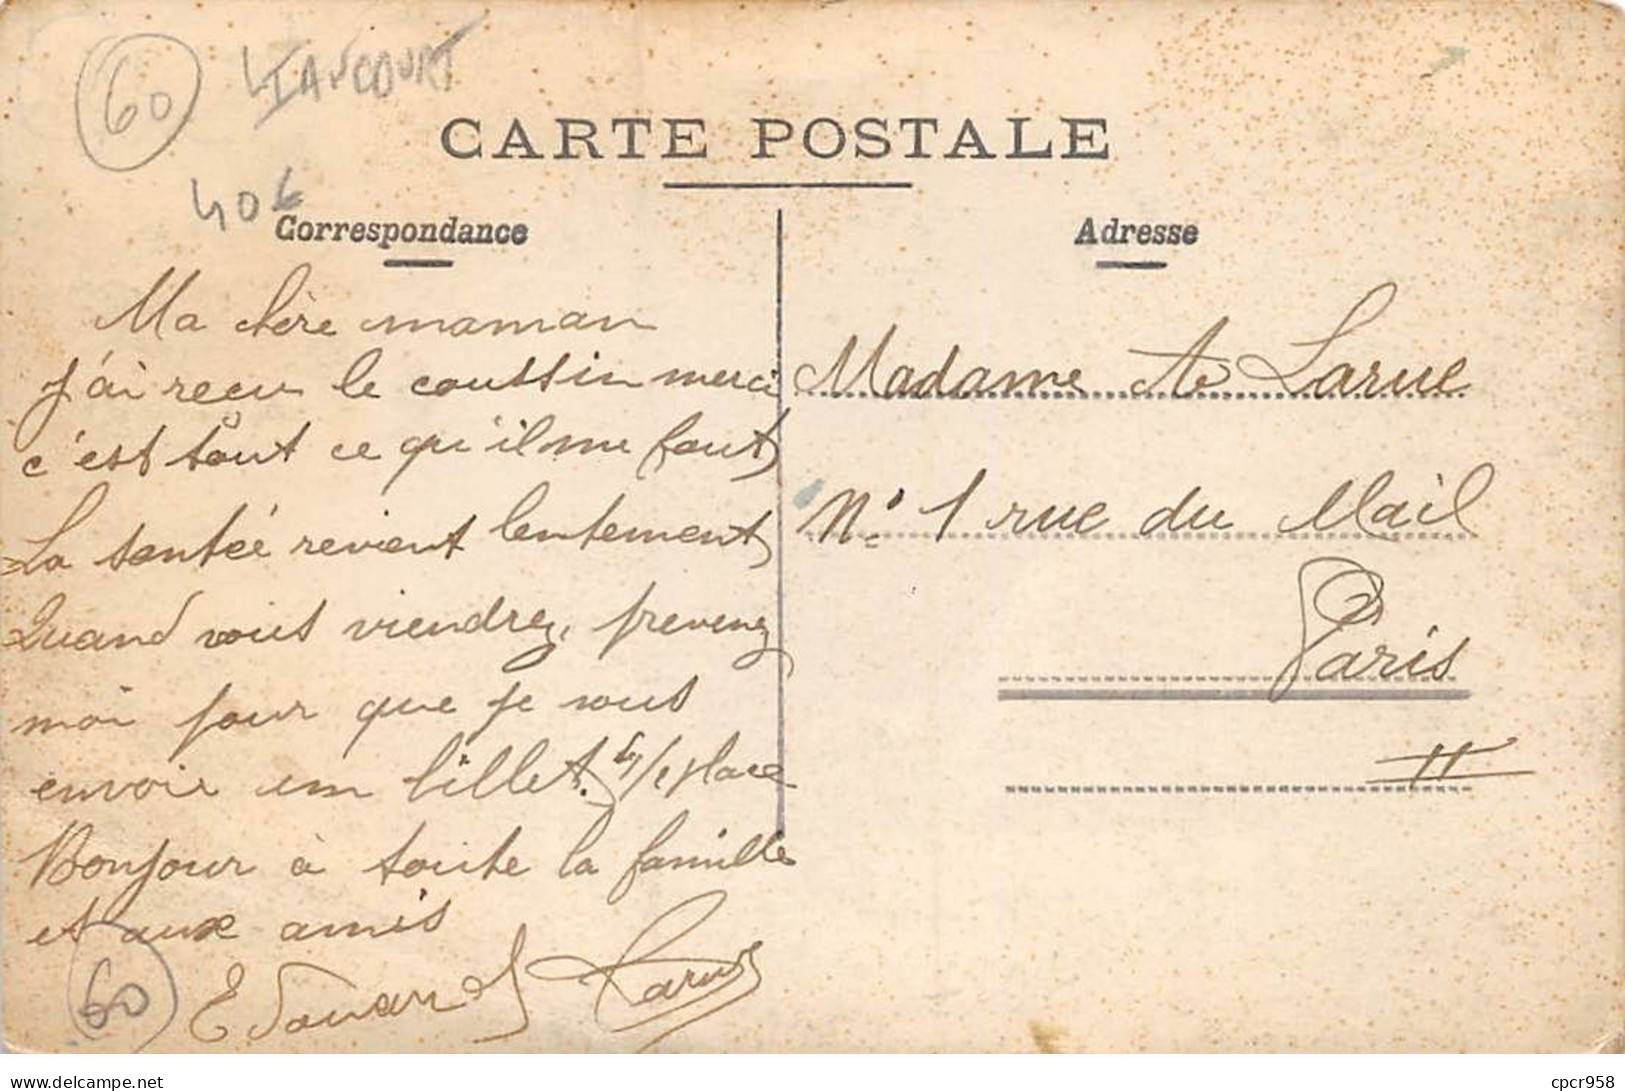 60 LIANCOURT
CARTE POSTALE
40€
Correspondance
Ma chère maman
J'ai reçu le coussin merci
c'est tout ce qu'il me faut
La santée revient lentement
Quand vous viendrez, prevenez
moi pour que je vous
envoie un billet. 1/4 place
Bonjour à toute la famille
et aux amis
60
Edouard Larue
Adresse
Madame A. Larue
N° 1 rue du Mail
Paris
www.delcampe.net
cpcr958